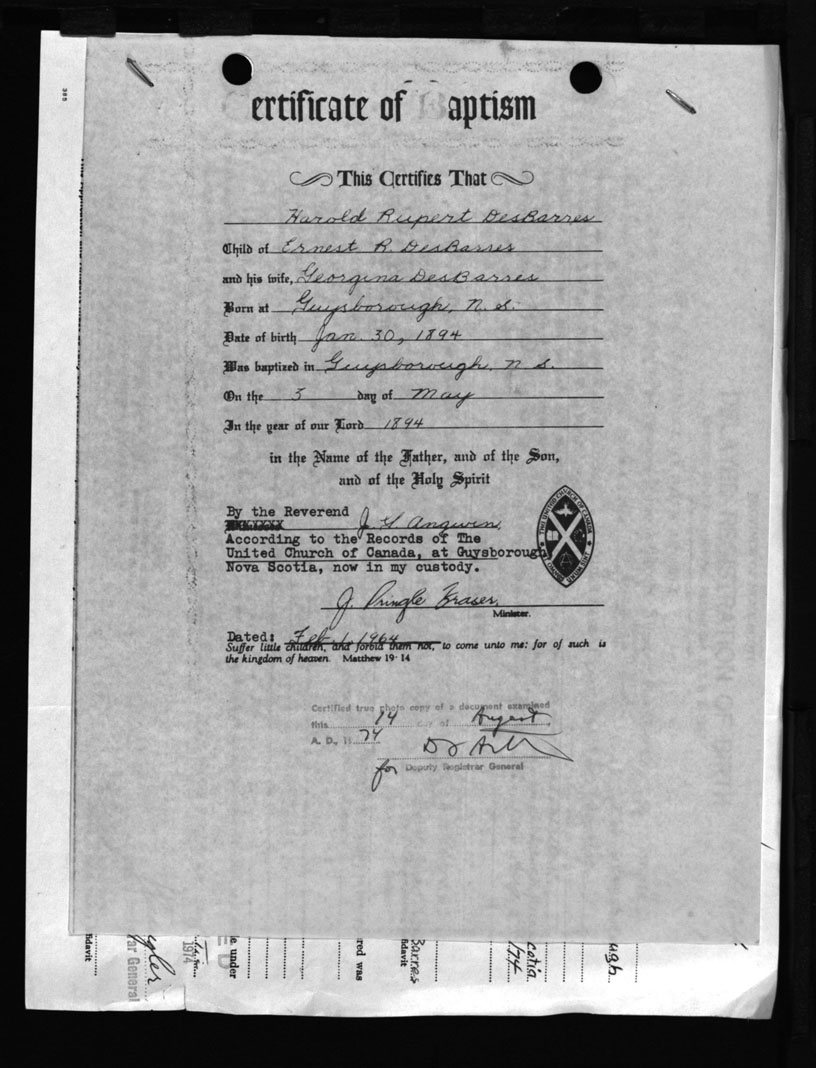 385
Certificate of Baptism
This Certifies That
Harold Rupert DesBarres
Child of Ernest R. DesBarres
and his wife, Georgina DesBarres
Born at Guysborough, N. S.
Date of birth Jan. 30, 1894
Was baptized in Guysborough, N. S.
On the 5 day of May
In the year of our Lord 1894
in the Name of the Father, and of the Son,
and of the Holy Spirit
By the Reverend
J. S. Angwin,
According to the Records of The
United Church of Canada, at Guysborough,
Nova Scotia, now in my custody.
THE UNITED CHURCH OF CANADA
J. Pringle Fraser,
Minister.
Dated: Feb. 1, 1964
Suffer little children, and forbid them not, to come unto me: for of such is
the kingdom of heaven. Matthew 19·14
Certified true photo copy of a document examined
this 14 day of August,
A. D., 19 74
for Deputy Registrar General
fidavit
ar General
1974
E D
le. under
red was
Barres
fidavit
cotia
174
ugh